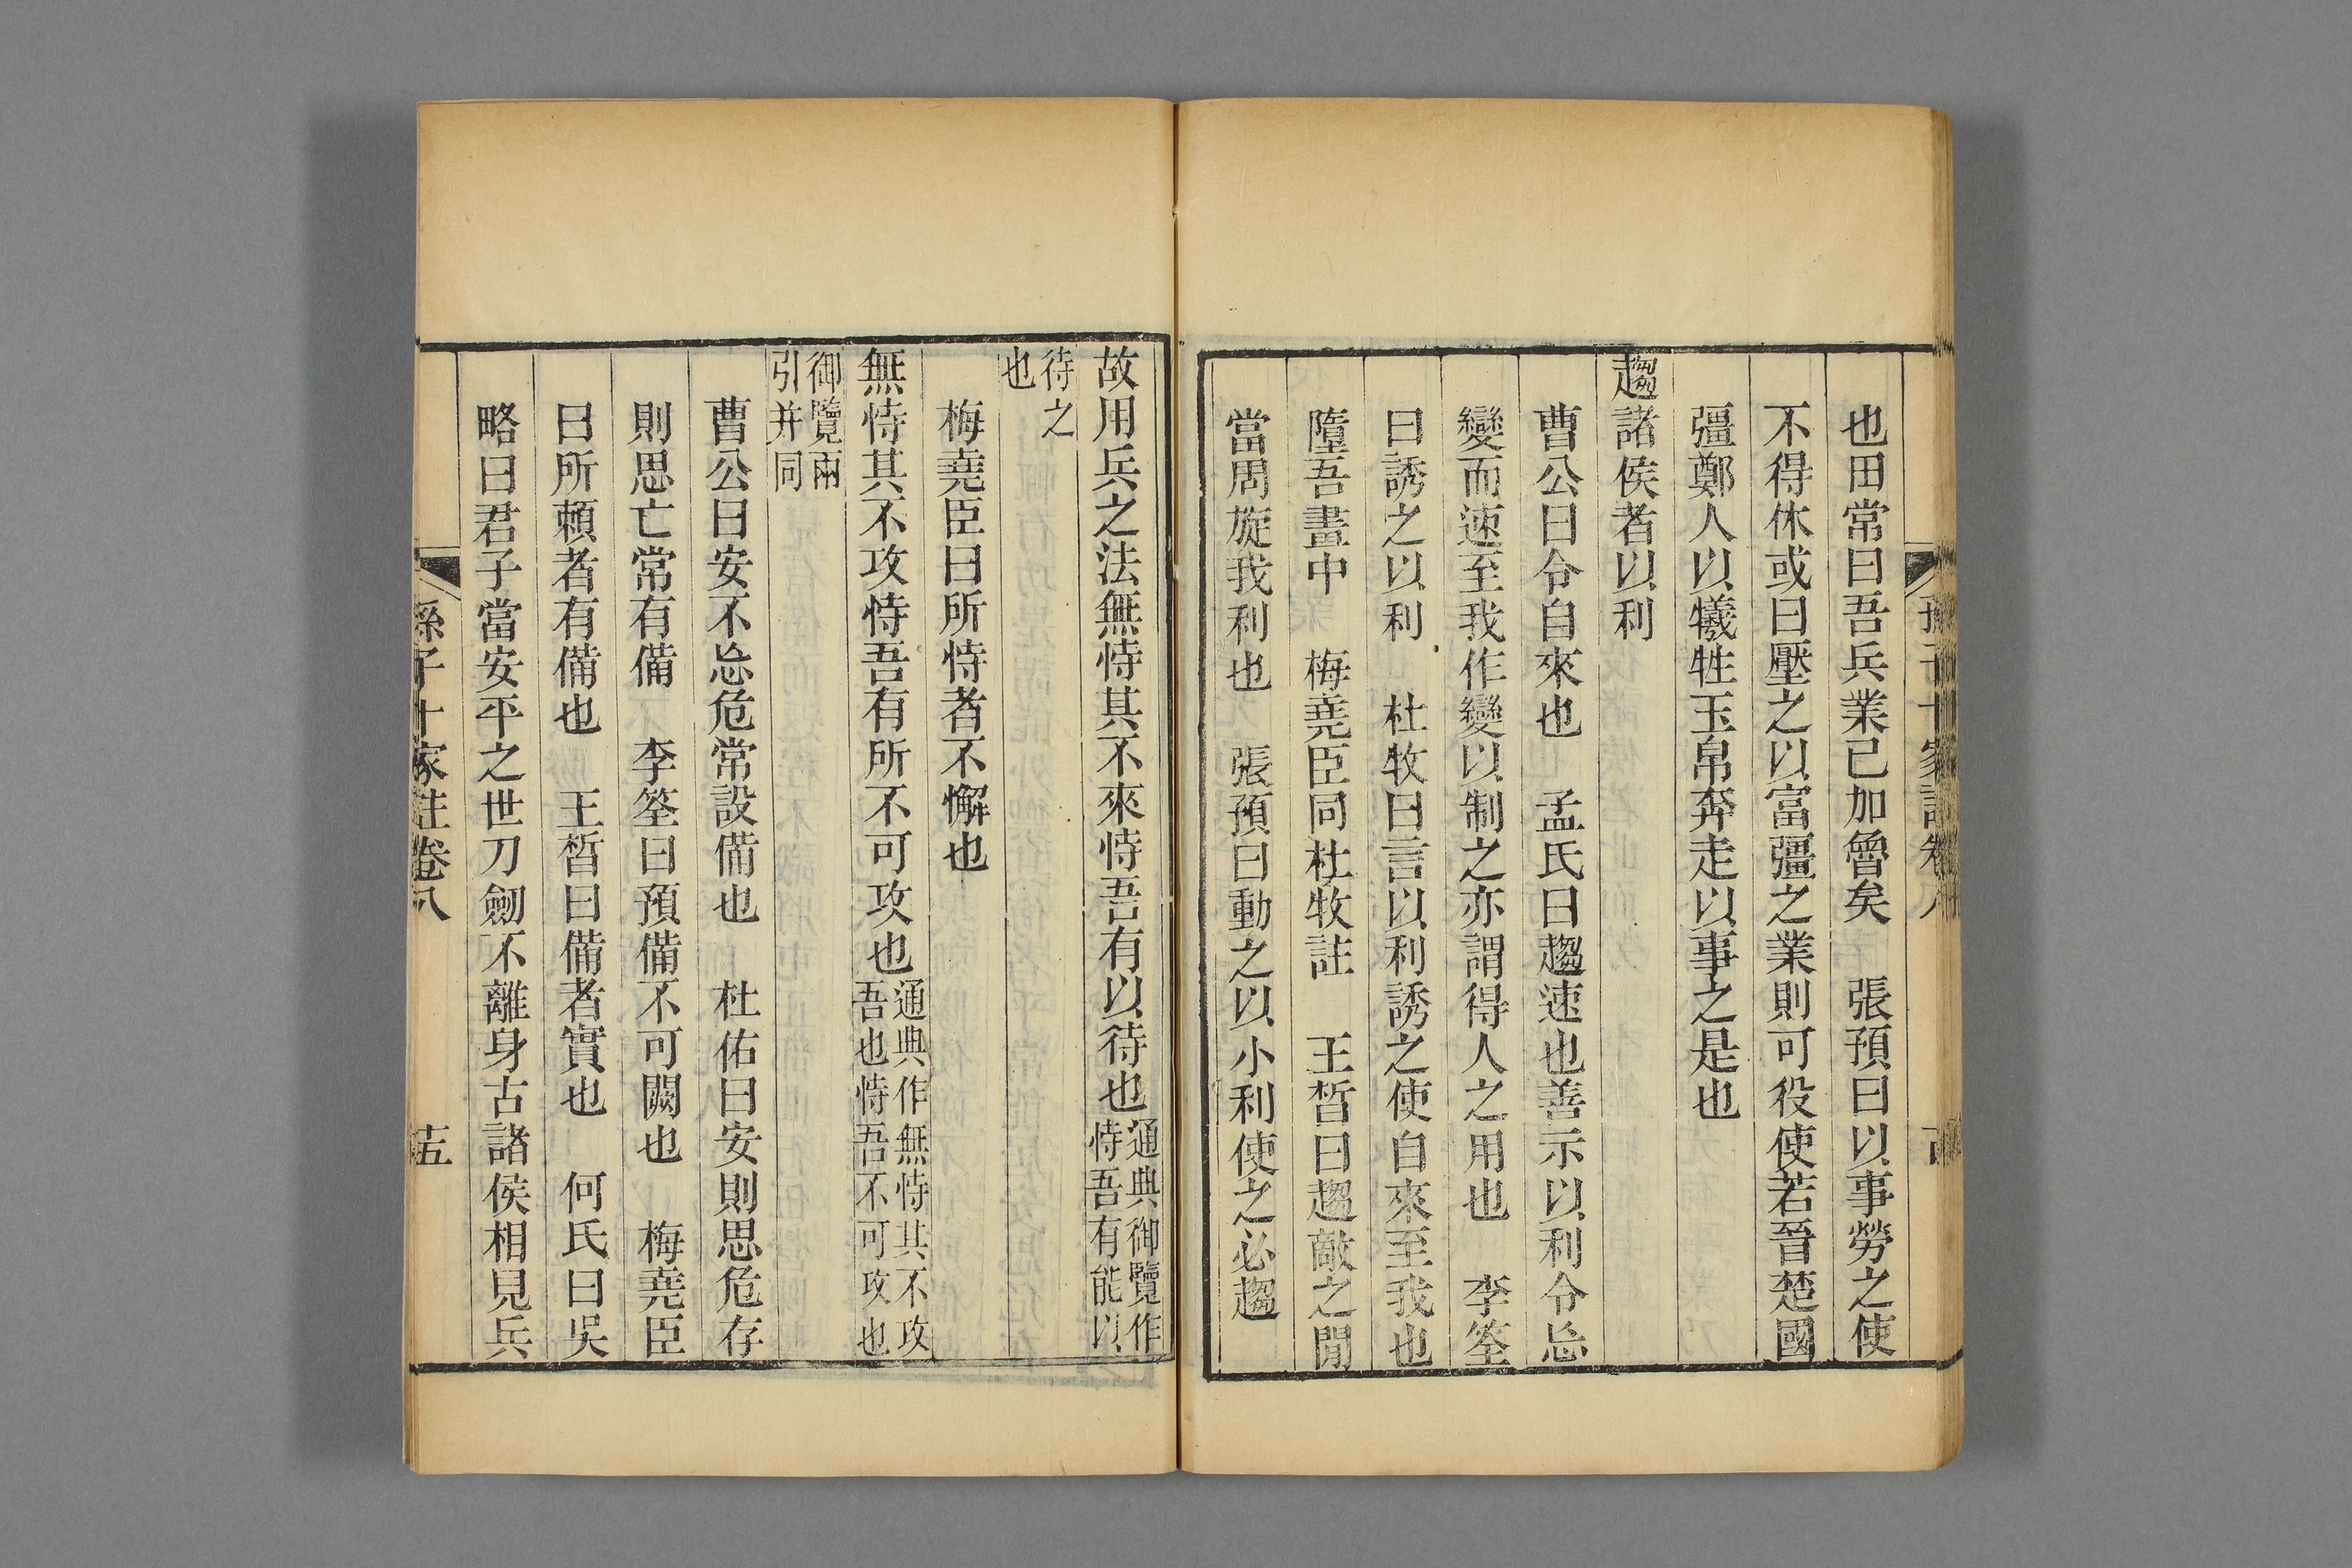 也田常曰吾兵業已加魯矣　張預曰以事勞之使
不得休或曰壓之以富彊之業則可役使若晉楚國
彊鄭人以犧牲玉帛奔走以事之是也
趨諸侯者以利
曹公曰令自來也　孟氏曰趨速也善示以利令忘
變而速至我作變以制之亦謂得人之用也　李筌
曰誘之以利　杜牧曰言以利誘之使自來至我也
墮吾畫中　梅堯臣同杜牧註　王晳曰趨敵之閒
當周旋我利也　張預曰動之以小利使之必趨
故用兵之法無恃其不來恃吾有以待也通典御覽作
恃吾有能以
待之
也
梅堯臣曰所恃者不懈也
無恃其不攻恃吾有所不可攻也通典作無恃其不攻
吾也恃吾不可攻也
御覽兩
引并同
曹公曰安不忘危常設備也　杜佑曰安則思危存
則思亡常有備　李筌曰預備不可闕也　梅堯臣
曰所賴者有備也　王晳曰備者實也　何氏曰吳
略曰君子當安平之世刀劒不離身古諸侯相見兵
孫子十家註卷八　十五